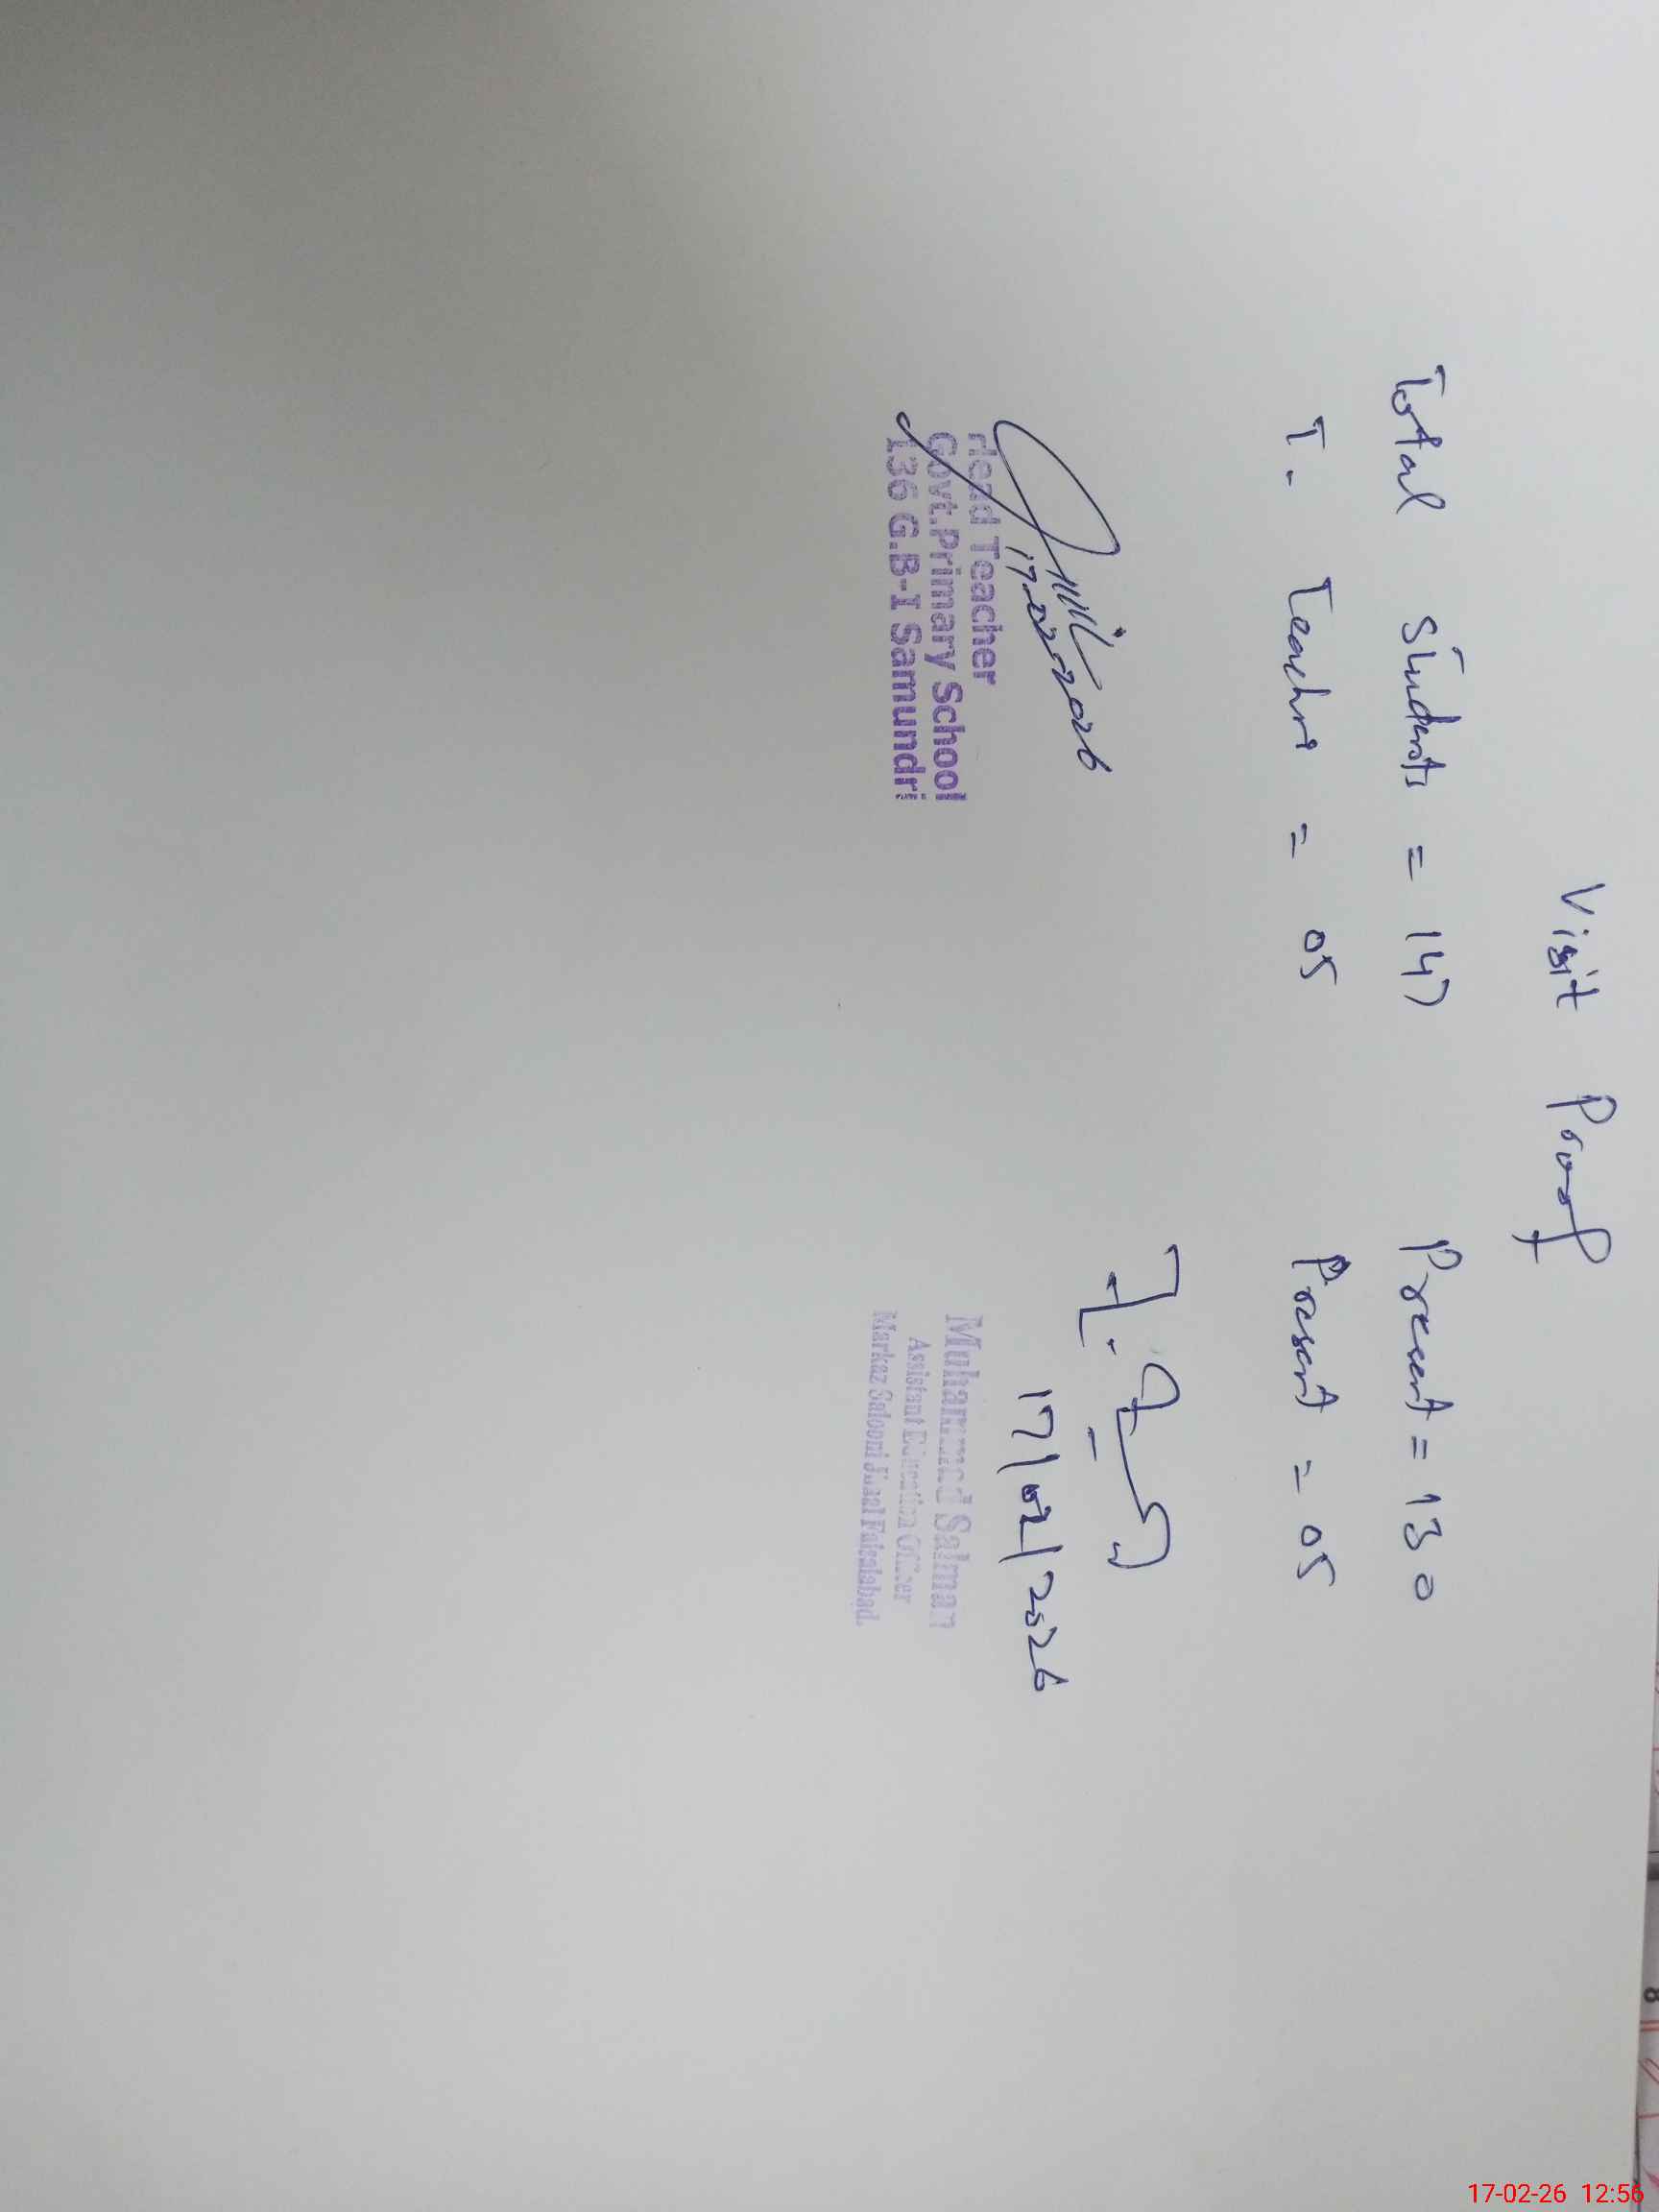 Visit Proof
Total Students = 147 Present = 130
T. Teachers = 05 Present = 05
17-02-2026
Head Teacher
Govt.Primary School
136 G.B-I Samundri
17/02/2026
Muhammad Salman
Assistant Education Officer
Markaz Salooni Jhaal Faisalabad.
8
17-02-26 12:56